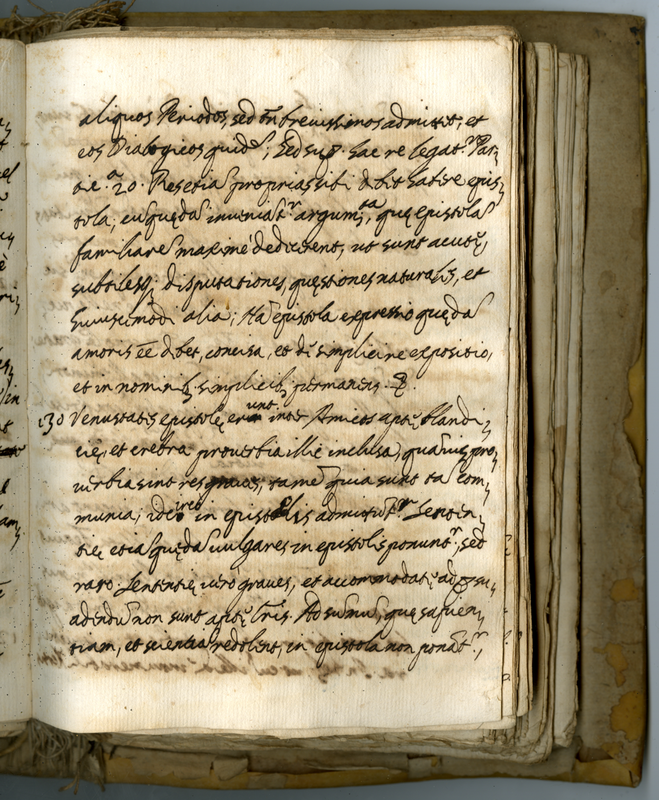 aliquos Periodos, sed tñ breuissimos admittit, et
eos Dialogicos quidē; Sed sup. hac re legat.r Par,
tic.a 20. Res etiā proprias sibi dēbit habere epis,
tola, eusquędā inueniāt.r argum.ta, quę epistolā
familiarē maximè dedecent, ut sunt acutę,
subtilesq; disputationes, quęstiones naturales, et
huiuscemodi alia; Nā epistola expressio quędā
amoris eē debet, concisa, et dē simplici re expositio,
et in nominib, simplicib, permanens.
130 Venustatis epistolę erunt inter Amicos aptę blandi,
cię, et crebra prouerbia illic inclusa, quāuis pro,
uerbia sint res graues, tamē quia sunt tā com,
munia, ideireo in epistolis admittūt.r Senten,
tię etiā quędā uulgares in epistolis ponunt.r, sed
raro. Sententię uero graues, et accommodatę ad persu,
adendū non sunt aptę lris. Ad sumū, quę sapien,
tiam, et scientiā redolent, in epistola non ponāt.r,